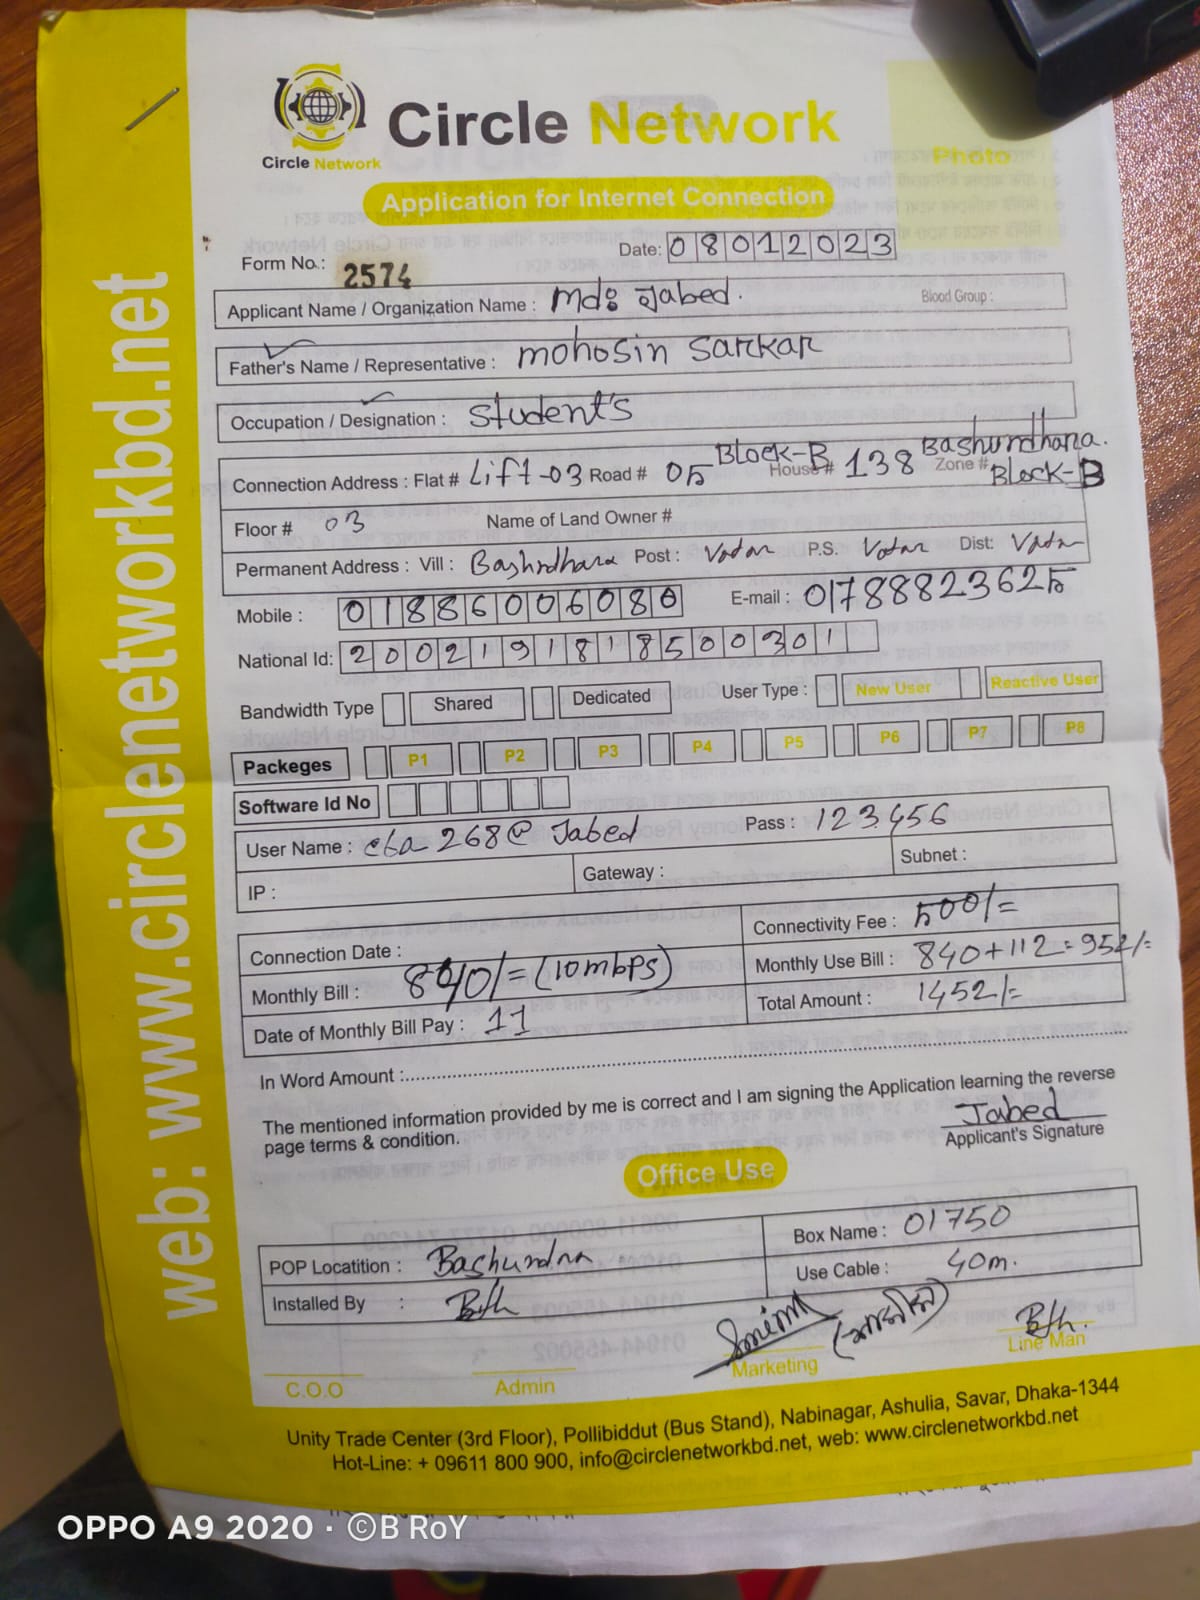 Circle Network
Circle Network
Photo
Application for Internet Connection
Form No.: 2574
Date: 08012023
Applicant Name / Organization Name : Md: Jabed. Blood Group :
Father's Name / Representative : mohosin sarkar
Occupation / Designation : Student's
Connection Address : Flat # Lift-03 Road # 05 Block-B House # 138 Bashundhana. Zone # Block-B
Floor # 03 Name of Land Owner #
Permanent Address : Vill : Bashndhara Post : Vatar P.S. Vatar Dist: Vatar
Mobile : 01886006080 E-mail : 01788823625
National Id: 2002191818500301
Bandwidth Type Shared Dedicated User Type : New User Reactive User
Packeges P1 P2 P3 P4 P5 P6 P7 P8
Software Id No
User Name : cba 268@ Jabed Pass : 123456
IP : Gateway : Subnet :
Connection Date : Connectivity Fee : 500/=
Monthly Bill : 840/= (10mbps) Monthly Use Bill : 840+112=952/=
Date of Monthly Bill Pay : 11 Total Amount : 1452/=
In Word Amount :
The mentioned information provided by me is correct and I am signing the Application learning the reverse
page terms & condition.
Jabed
Applicant's Signature
Office Use
POP Locatition : Bashundra Box Name : 01750
Installed By : Use Cable : 40m.
C.O.O Admin Marketing Line Man
Unity Trade Center (3rd Floor), Pollibiddut (Bus Stand), Nabinagar, Ashulia, Savar, Dhaka-1344
Hot-Line: + 09611 800 900, info@circlenetworkbd.net, web: www.circlenetworkbd.net
web: www.circlenetworkbd.net
OPPO A9 2020 · ©B RoY